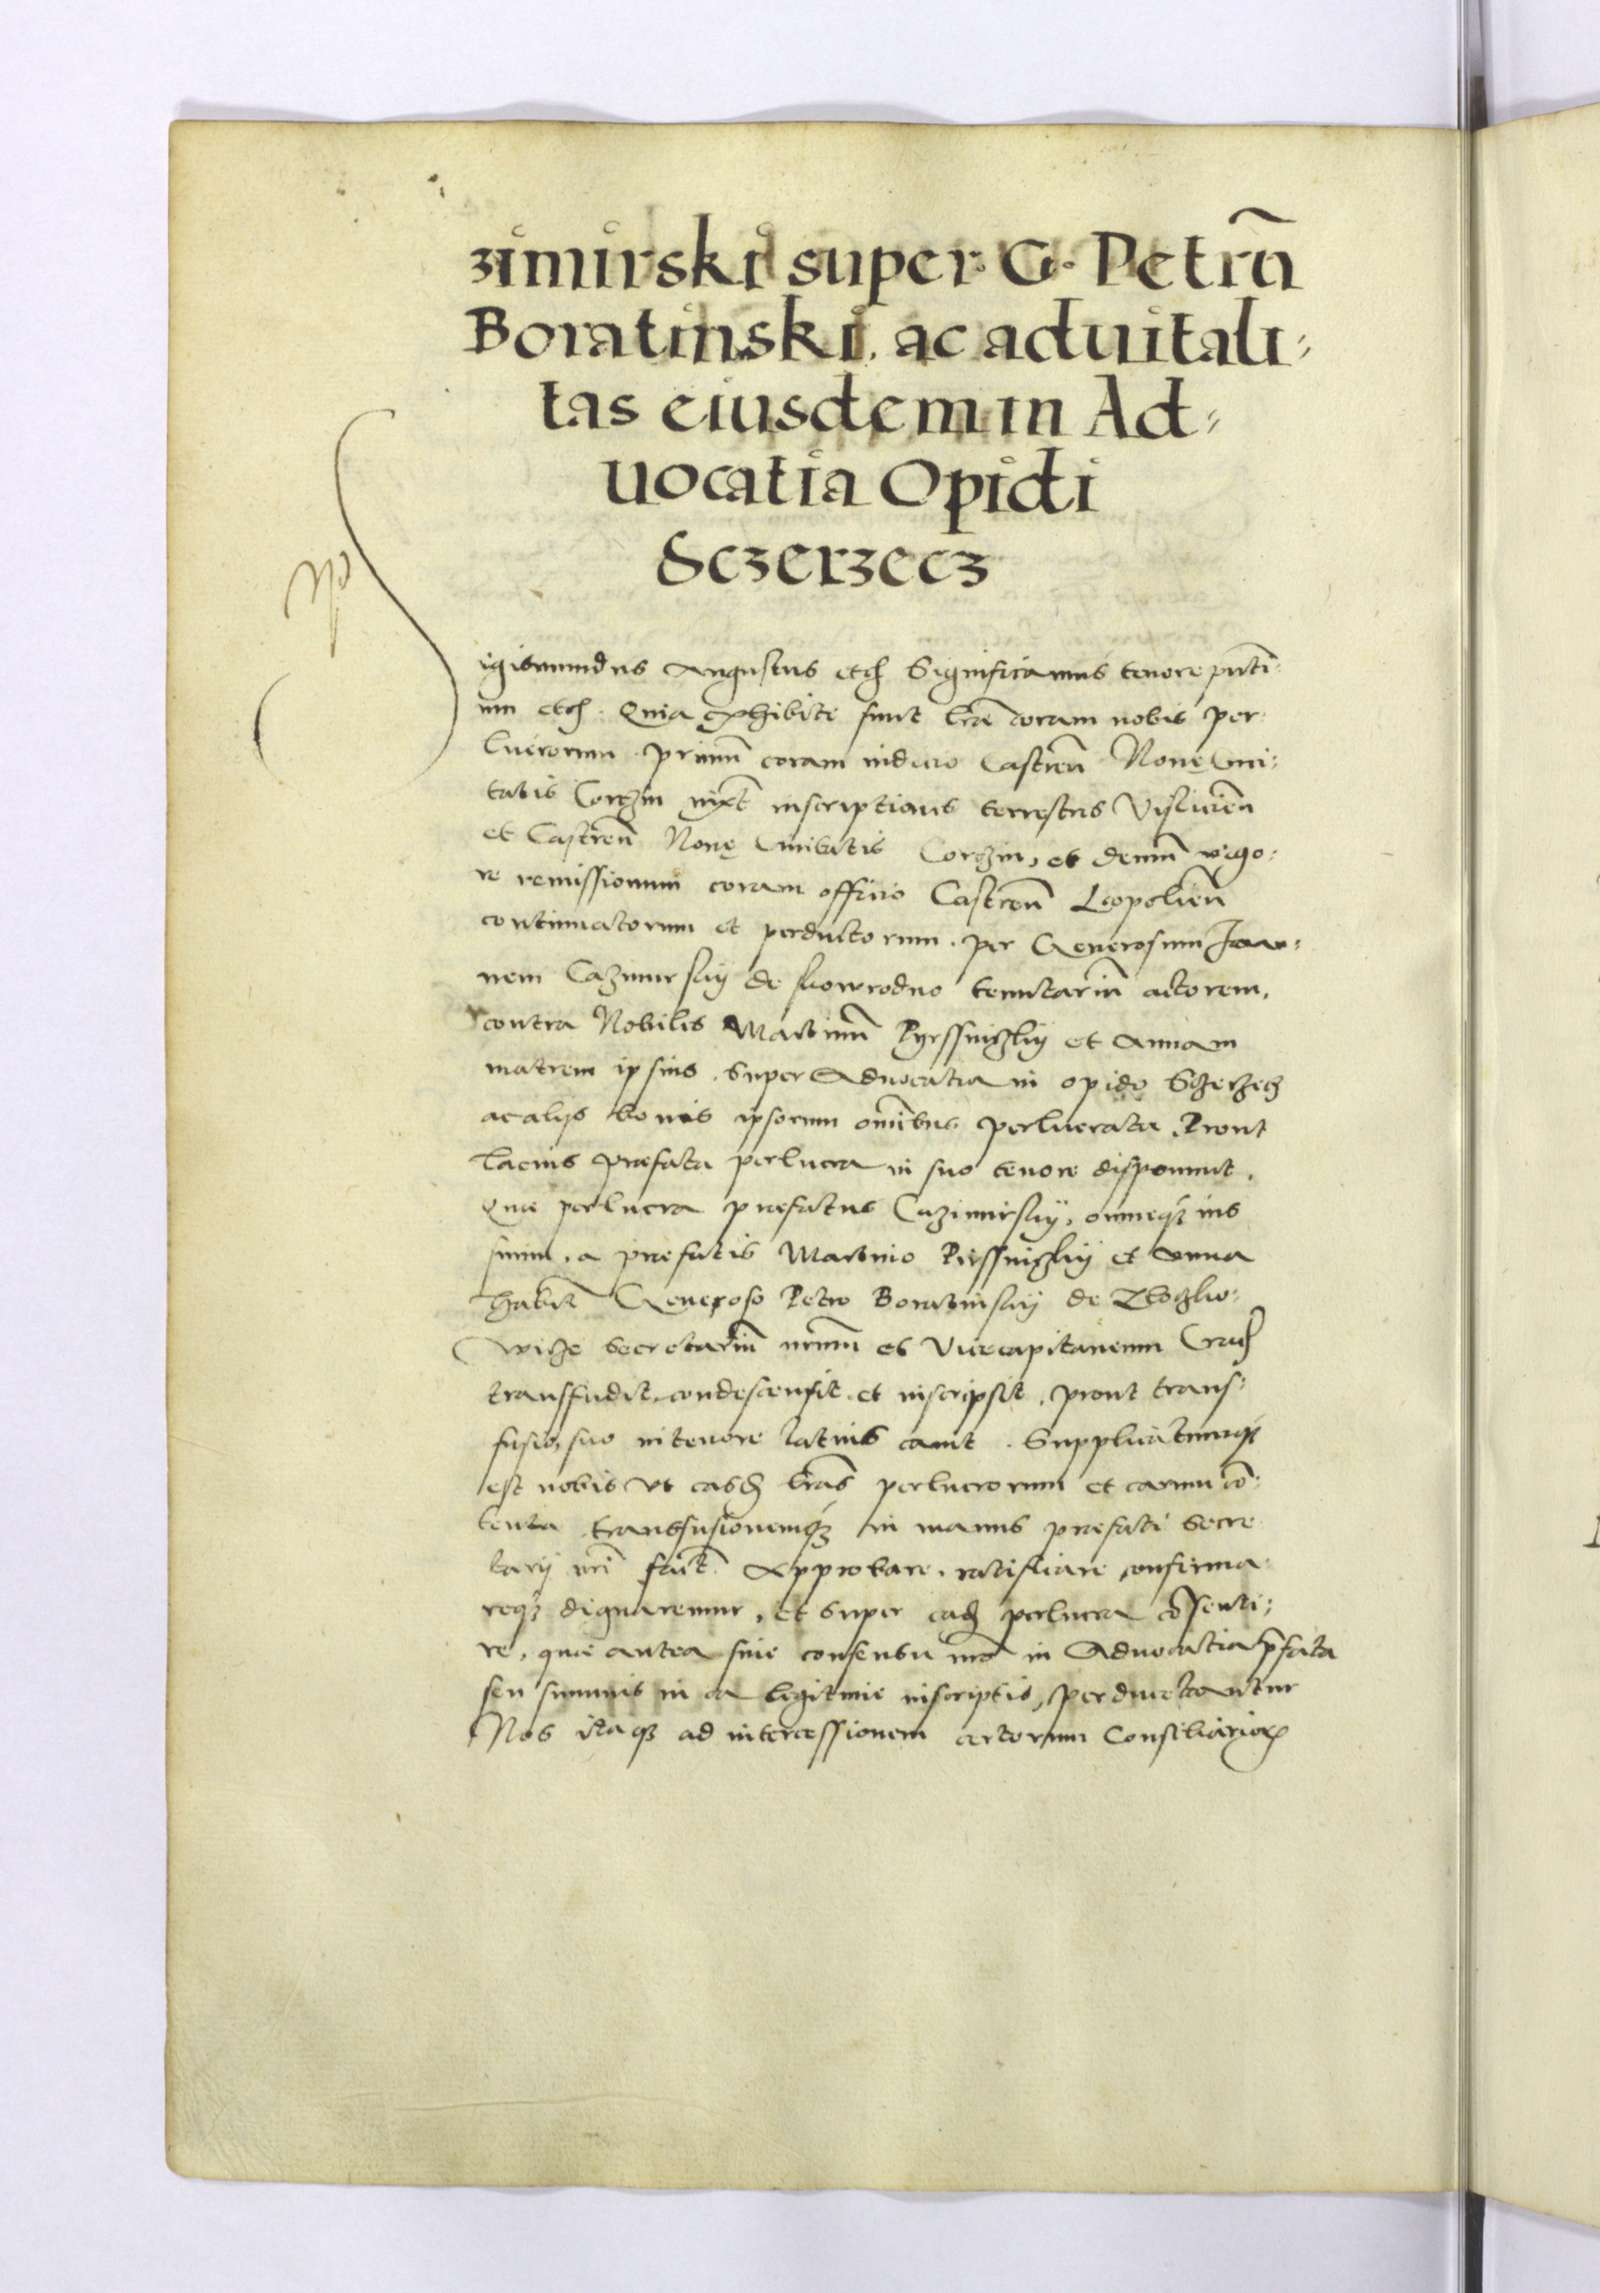 zimirski super G. Petrũ
Boratinski, ac aduitali-
tas eiusdem in Ad-
uocatia Opidi
Sczerzecz
Sigismundus Augustus etc Significamus tenore pntĩ
um etc. Quia exhibite sunt lrae coram nobis per
lucrorum primũ coram iudicio Castreñ Nouę Ciui-
tatis Corczin iuxt inscriptionis terrestris Vislicieñ
et Castreñ Nouę Ciuitatis Corczin, et demũ vigo-
re remissionum coram officio Castreñ Leopolieñ
continuatorum et perductorum. per Generosum Joan-
nem Cazimirskij de tenutariũ actorem,
contra Nobiles Martinũ et Annam
matrem ipsius. super Aduocatia in opido Sczerzecz
ac alijs bonis ipsorum omĩbus perlucrata. Prout
lacius praefata perlucra in suo tenore disponunt.
Quae perlucra praefatus Cazimirskij, omneqz ius
suum, a praefatis Martino et Anna
habitũ Generoso Petro Boratinskij de
wicze secretariũ nrm̃ et Vicecapitaneum Crac
transfudit, condescensit, et inscripsit, prout trans-
fusio, suo in tenore latius canit. Supplicatumqz
est nobis vt easd lrãs perlucrorum et earum cõ-
tenta transfusionemqz in manus praefati secre
tarij nrĩ fact. Approbare, ratificare confirma
reqz dignaremur, et super ead perlucra cõsenti-
re, quae antea sine consensu nrõ in Aduocatia p̃fata
seu summis in ea legitime inscriptis, perducebantur
Nos itaqz ad intercessionem certorum Consiliariorũ